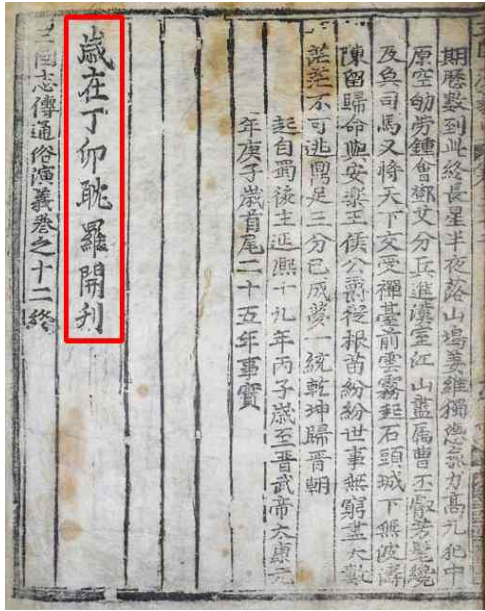 期歷數到此終長星半夜落山塢姜維獨憑氣力高九犯中
原空劬勞鍾會鄧艾分兵進漢室江山盡屬曹丕叡芳髦纔
及奐司馬又將天下交受禪臺前雲霧起石頭城下無波濤
陳留歸命與安樂王侯公爵從根苗紛紛世事無窮盡天數
茫茫不可逃鼎足三分已成夢一統乾坤歸晉朝
起自蜀後主延熙十九年丙子歲至晉武帝太康元
年庚子歲首尾二十五年事實
歲在丁卯耽羅開刋
三國志傳通俗演義卷之十二終